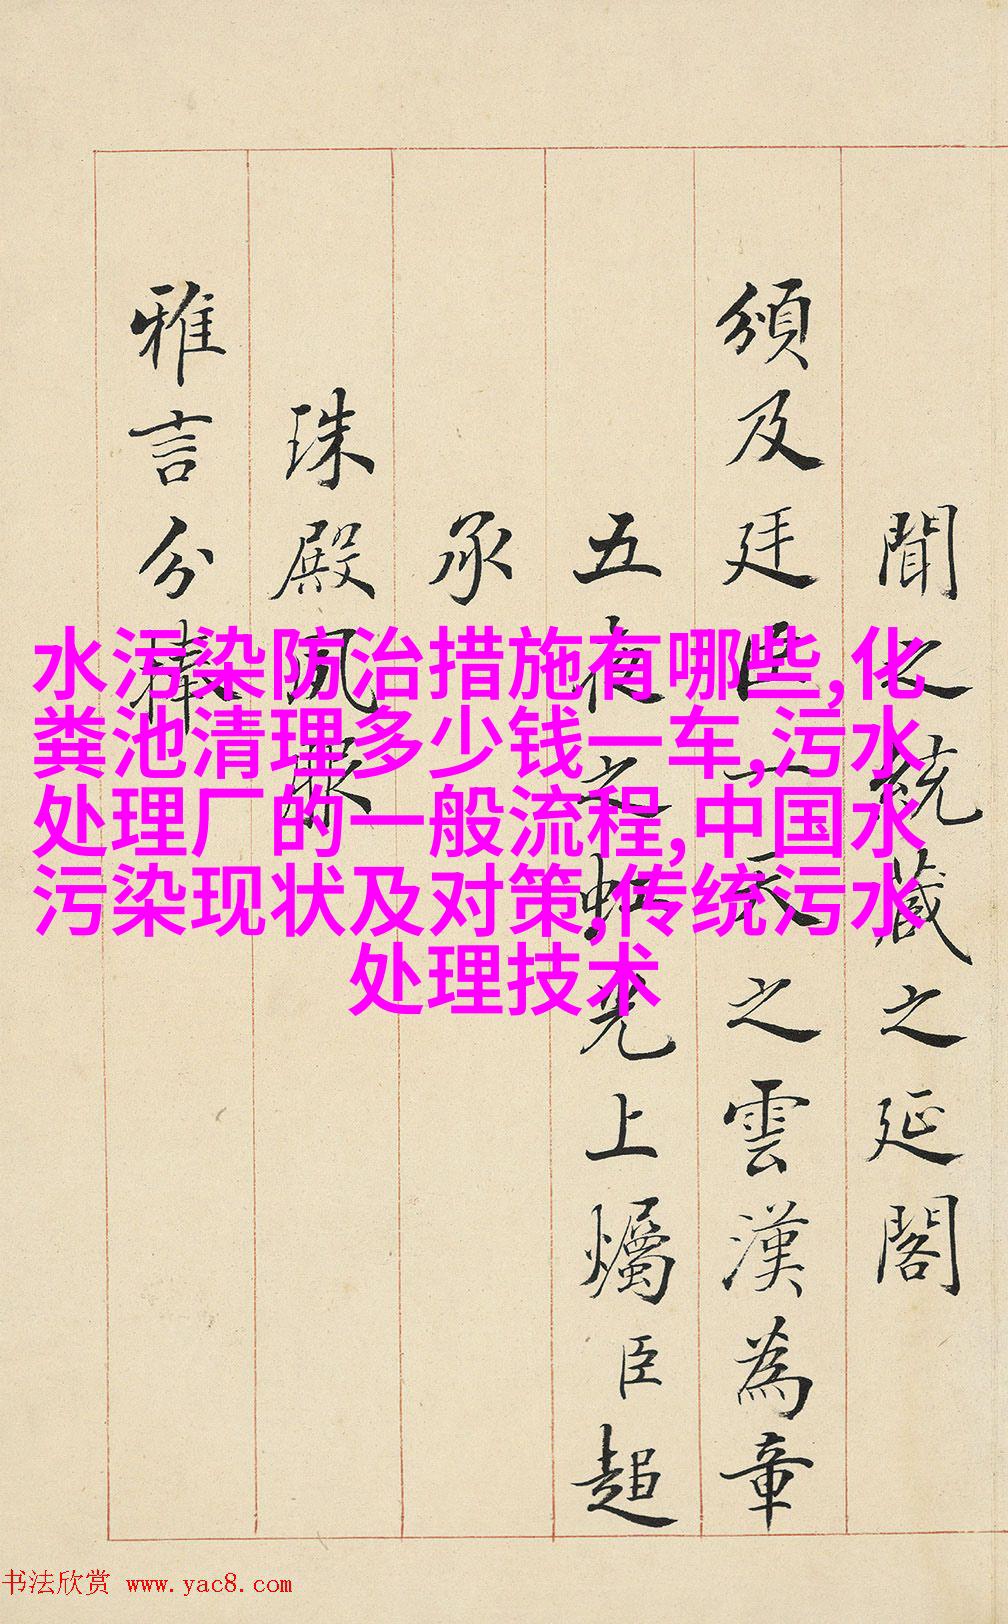 聞之統藏之延閣
頒及廷臣一天之雲漢為章
五夜之虹光上燭臣超
承
珠殿夙
雅言分
水污染防治措施有哪些,化
粪池清理多少钱一车,污水
处理厂的一般流程,中国水
污染现状及对策,传统污水
处理技术
书法欣赏 www.yac8.com